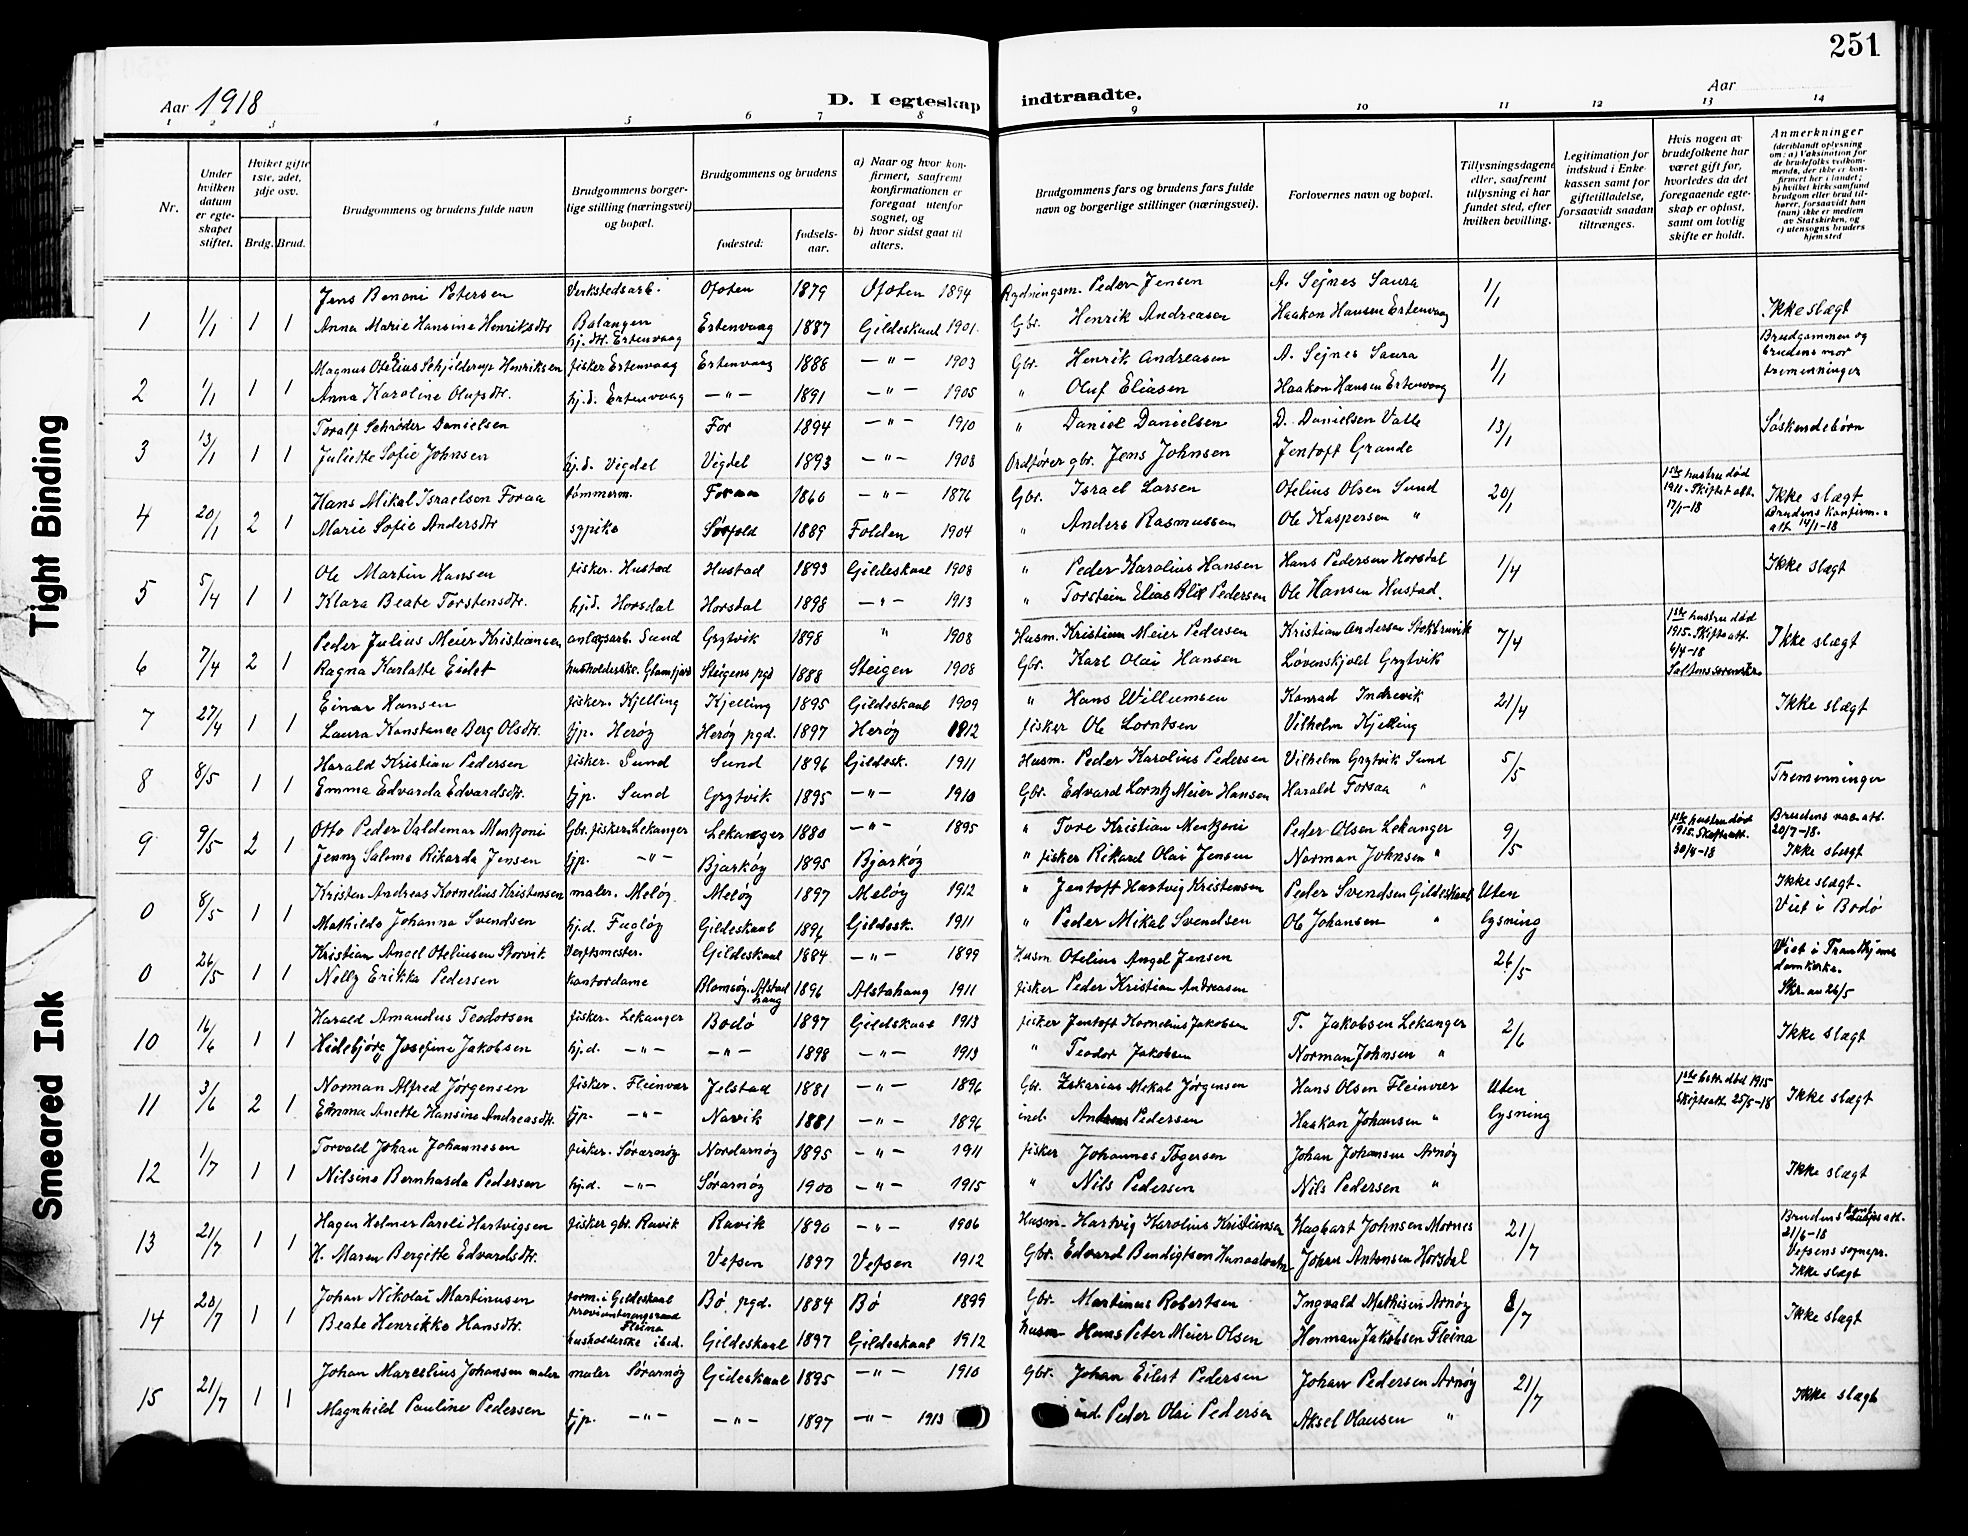 251
Aar 1918
D. I egteskap indtraadte.
Aar
1 2 3 4 5 6 7 8 9 10 11 12 13 14
Nr.
Under hvilken datum er egteskapet stiftet.
Hvilket gifte 1ste, 2det, 3dje osv.
Brdg. Brud.
Brudgommens og brudens fulde navn
Brudgommens borgerlige stilling (næringsvei) og bopæl.
Brudgommens og brudens
fødested:
fødselsaar.
a) Naar og hvor konfirmert, saafremt konfirmationen er foregaat utenfor sognet, og
b) hvor sidst gaat til alters.
Brudgommens fars og brudens fars fulde navn og borgerlige stillinger (næringsvei).
Forlovernes navn og bopæl.
Tillysningsdagene eller, saafremt tillysning ei har fundet sted, efter hvilken bevilling.
Legitimation for indskud i Enkekassen samt for giftetilladelse, forsaavidt saadan tiltrænges.
Hvis nogen av brudefolkene har været gift før, hvorledes da det foregaaende egteskap er opløst, samt om lovlig skifte er holdt.
Anmerkninger (deriblandt oplysning om: a) Vaksination for de brudefolks vedkommende, der ikke er konfirmert her i landet; b) hvilket kirkesamfund brudgom eller brud tilhører, forsaavidt han (hun) ikke er medlem av Statskirken, og c) utensogns bruders hjemsted
Jens Benoni Petersen Verkstedsarb. Ofoten 1879 Ofoten 1894 Peder Jensen A. Sejnes Saura 1/1
1 1/1 1 1 Anna Marie Hansine Henriksdtr Balangen hj. dt. Ertenvaag Ertenvaag 1887 Gildeskaal 1901. Gbr. Henrik Andreasen Haakon Hansen Ertenvaag Ikke slægt
Magnus Otelius Schjilderup Henriksen fisker Ertenvaag Ertenvaag 1888 —"— 1903 Gbr. Henrik Andreasen A. Sejnes Saura 1/1 Brudgommen og brudens mor tremenninger
2 1/1 1 1 Anna Karoline Olufsdtr. hj.d. Ertenvaag —"— 1891 —"— 1905 " Oluf Eliasen Haakon Hansen Ertenvaag
Toralf Schrøder Danielsen For 1894 —"— 1910 " Daniel Danielsen D. Danielsen Valle 13/1 Søskendebørn
3 13/1 1 1 Juliette Sofie Johnsen hj.d. Vigdel Vigdel 1893 —"— 1908 Ordfører gbr. Jens Johnsen Jentoft Grande
Hans Mikal Israelsen Foraa tømmerm. Foraa 1860 —"— 1876 Gbr. Israel Larsen Otelius Olsen Sund 20/1 1ste hustru død 1911. Skiftet att. 17/1-18 Ikke slægt
4 20/1 2 1 Marie Sofie Andersdtr sypike Sørfold 1889 Folden 1904 " Anders Rasmussen Ole Kaspersen " Brudens konfirm.att. 14/1-18
Ole Martin Hansen fisker. Hustad Hustad 1893 Gildeskaal 1908 " Peder Karolius Hansen Hans Pedersen Horsdal 1/4 Ikke slægt
5 5/4 1 1 Klara Beate Torstensdtr. hj.d. Horsdal Horsdal 1898 —"— 1913 " Torstein Elias Blix Pedersen Ole Hansen Hustad.
Peder Julius Meier Kristiansen anlægsarb. Sund Grytvik 1898 " 1908 Husm. Kristian Meier Pedersen Kristian Andersen Stokbruvik 7/4 1ste hustru død 1915. Skifte att. 6/4-18 Ikke slægt
6 7/4 2 1 Ragna Karlotte Eidet husholderske. Glomfjord Steigens pgd 1888 Steigen 1908 Gbr. Karl Olai Hansen Løvenskjold Grytvik
Einar Hansen fisker. Kjelling Kjelling 1895 Gildeskaal 1909 " Hans Willumsen Konrad Indrevik 21/4 Ikke slægt
7 27/4 1 1 Laura Konstance Berg Olsdtr. tjp. Herøy Herøy pgd. 1897 Herøy 1912 fisker Ole Lorntsen Vilhelm Kjelling
Harald Kristian Pedersen fisker. Sund Sund 1896 Gildesk. 1911 Husm. Peder Karolius Pedersen Vilhelm Grytvik Sund 5/5 Tremenninger
8 8/5 1 1 Emma Edvarda Edvardsdtr. tjp. Sund Grytvik 1895 —"— 1910 Gbr. Edvard Lorntz Meier Hansen Harald Forsaa "
Otto Peder Valdemar Mentzoni Gbr. fisker. Lekanger Lekanger 1880 —"— 1895 " Tore Kristian Mentzoni Peder Olsen Lekanger 9/5 1ste hustru død 1915. Skifteatt. 30/4-18 Brudens vac.att. 20/7-18. Ikke slægt
9 9/5 2 1 Jenny Salome Rikarda Jensen tjp. —"— Bjarkøy 1895 Bjarkøy " fisker Rikard Olai Jensen Norman Johnsen "
Kristen Andreas Kornelius Kristensen maler. Meløy Meløy 1897 Meløy 1912 " Jentoft Hartvig Kristensen Peder Svendsen Gildeskaal Uten lysning Ikke slægt. Viet i Bodø
0 8/5 1 1 Mathilde Johanna Svendsen hj.d. Fugløy Gildeskaal 1896 Gildesk. 1911 " Peder Mikal Svendsen Ole Johansen "
Kristian Angel Oteliussen Storvik Verftsmester. Gildeskaal 1884 —"— 1899 Husm Otelius Angel Jensen 26/5 Viet i Trondhjems domkirke. Skr. av 26/5
0 26/5 1 1 Nelly Erikka Pedersen kontordame Blomsøy. Alstadhaug 1896 Alstahaug 1911 fisker Peder Kristian Andreasen
Harald Amandus Teodorsen fisker. Lekanger Bodø 1897 Gildskaal 1913 fisker Jentoft Kornelius Jakobsen T. Jakobsen Lekanger 2/6 Ikke slægt
10 16/6 1 1 Hildebjørg Josefine Jakobsen hj.d. —"— —"— 1898 —"— 1913 " Teodor Jakobsen Norman Johnsen "
Norman Alfred Jørgensen fisker. Fleinvær Jelstad 1881 —"— 1896 Gbr. Zakarias Mekal Jørgensen Hans Olsen Fleinvær Uten lysning 1ste hstr. død 1915 Skifteatt. 25/5-18 Ikke slægt
11 3/6 2 1 Emma Anette Hansine Andreasdtr. tjp. —"— Narvik 1881 —"— 1896 ind. Andreas Pedersen Haakon Johansen "
Torvald Johan Johannesen fisker. Sørarnøy Nordarnøy 1895 —"— 1911 fisker Johannes Tøgersen Johan Johansen Arnøy Ikke slægt
12 1/7 1 1 Nilsine Bernharda Pedersen hj.d. —"— Sørarnøy 1900 —"— 1915 " Nils Pedersen Nils Pedersen "
Hagen Helmer Paroli Hartvigsen fisker gbr. Ravik Ravik 1890 —"— 1906 Husm. Hartvig Karolius Kristiansen Hagbart Johnsen Mornes 21/7 21/6-18 Vefsens sognepr. Ikke slægt
13 21/7 1 1 H. Maren Bergitte Edvardsdtr. Vefsen 1897 Vefsen 1912 Gbr. Edvard Bendigtsen Johan Antonsen Horsdal
Johan Nikolai Martinusen form. i Gildeskaal provianteringsraad Fleina Bø pgd. 1884 Bø 1899 Gbr. Martinus Robertsen Ingvald Mathisen Arnøy 8/7 Ikke slægt
14 28/7 1 1 Beate Henrikke Hansdtr. husholderske ibid. Gildeskaal 1897 Gildeskaal 1912 husm Hans Peter Meier Olsen Herman Jakobsen Fleina
Johan Marcelius Johansen maler maler Sørarnøy Gideskaal 1895 —"— 1910 Gbr. Johan Eilert Pedersen Johan Pedersen Arnøy 21/7 Ikke slægt
15 21/7 1 1 Magnhild Pauline Pedersen tjp. —"— —"— 1897 —"— 1913 ind. Peder Olai Pedersen Aksel Olausen "
Tight Binding
Smeared Ink